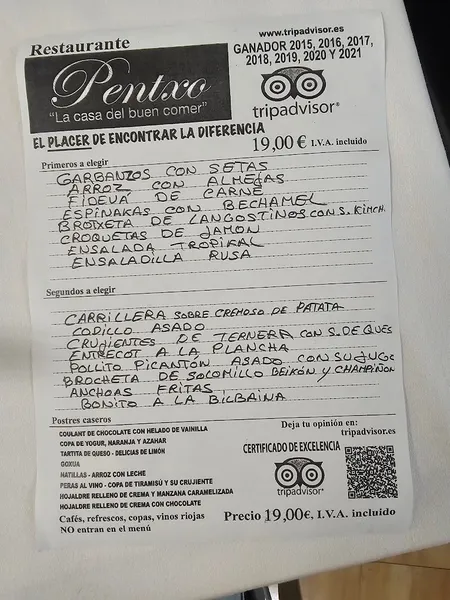 Restaurante
Pentxo
"La casa del buen comer"
www.tripadvisor.es
GANADOR 2015, 2016, 2017,
2018, 2019, 2020 Y 2021
tripadvisor®
EL PLACER DE ENCONTRAR LA DIFERENCIA
19,00 € I.V.A. incluido
Primeros a elegir
GARBANZOS CON SETAS
ARROZ CON ALMEJAS
FIDEUA DE CARNE
ESPINAKAS CON BECHAMEL
BROTXETA DE LANGOSTINOS CON S. KIMCH.
CROQUETAS DE JAMON
ENSALADA TROPIKAL
ENSALADILLA RUSA
Segundos a elegir
CARRILLERA SOBRE CREMOSO DE PATATA
CODILLO ASADO
CRUJIENTES DE TERNERA CON S. DE QUES
ENTRECOT A LA PLANCHA
POLLITO PICANTÓN ASADO CON SU JUGO
BROCHETA DE SOLOMILLO BEIKÓN Y CHAMPIÑON
ANCHOAS FRITAS
BONITO A LA BILBAINA
Postres caseros
COULANT DE CHOCOLATE CON HELADO DE VAINILLA
COPA DE YOGUR, NARANJA Y AZAHAR
TARTITA DE QUESO - DELICIAS DE LIMÓN
GOXUA
NATILLAS - ARROZ CON LECHE
PERAS AL VINO - COPA DE TIRAMISÚ Y SU CRUJIENTE
HOJALDRE RELLENO DE CREMA Y MANZANA CARAMELIZADA
HOJALDRE RELLENO DE CREMA CON CHOCOLATE
Cafés, refrescos, copas, vinos riojas
NO entran en el menú
Deja tu opinión en:
tripadvisor.es
CERTIFICADO DE EXCELENCIA
tripadvisor®
Precio 19,00€, I.V.A. incluido